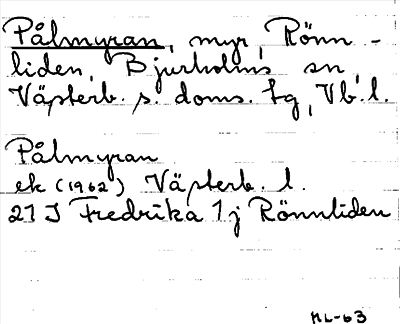 Pålmyran, myr, Rönn-
liden, Bjurholms sn,
Västerb. s. doms. tg, Vb. l.
Pålmyran
ek (1962) Västerb. l.
21 J Fredrika 1 j Rönnliden
NL-63